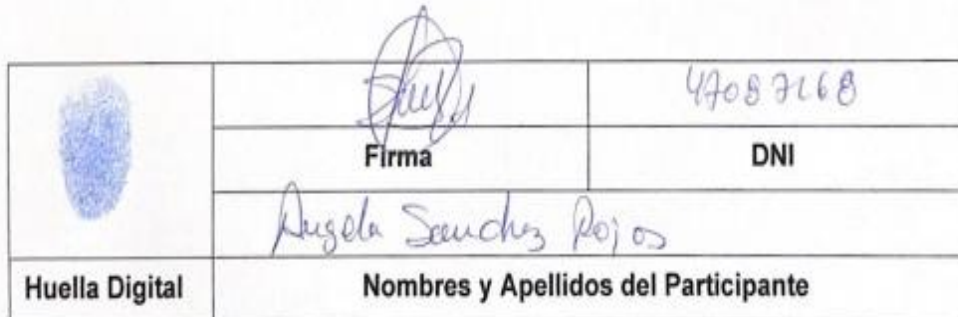 47087168
Firma
DNI
Angela Sanchez Rojas
Huella Digital
Nombres y Apellidos del Participante